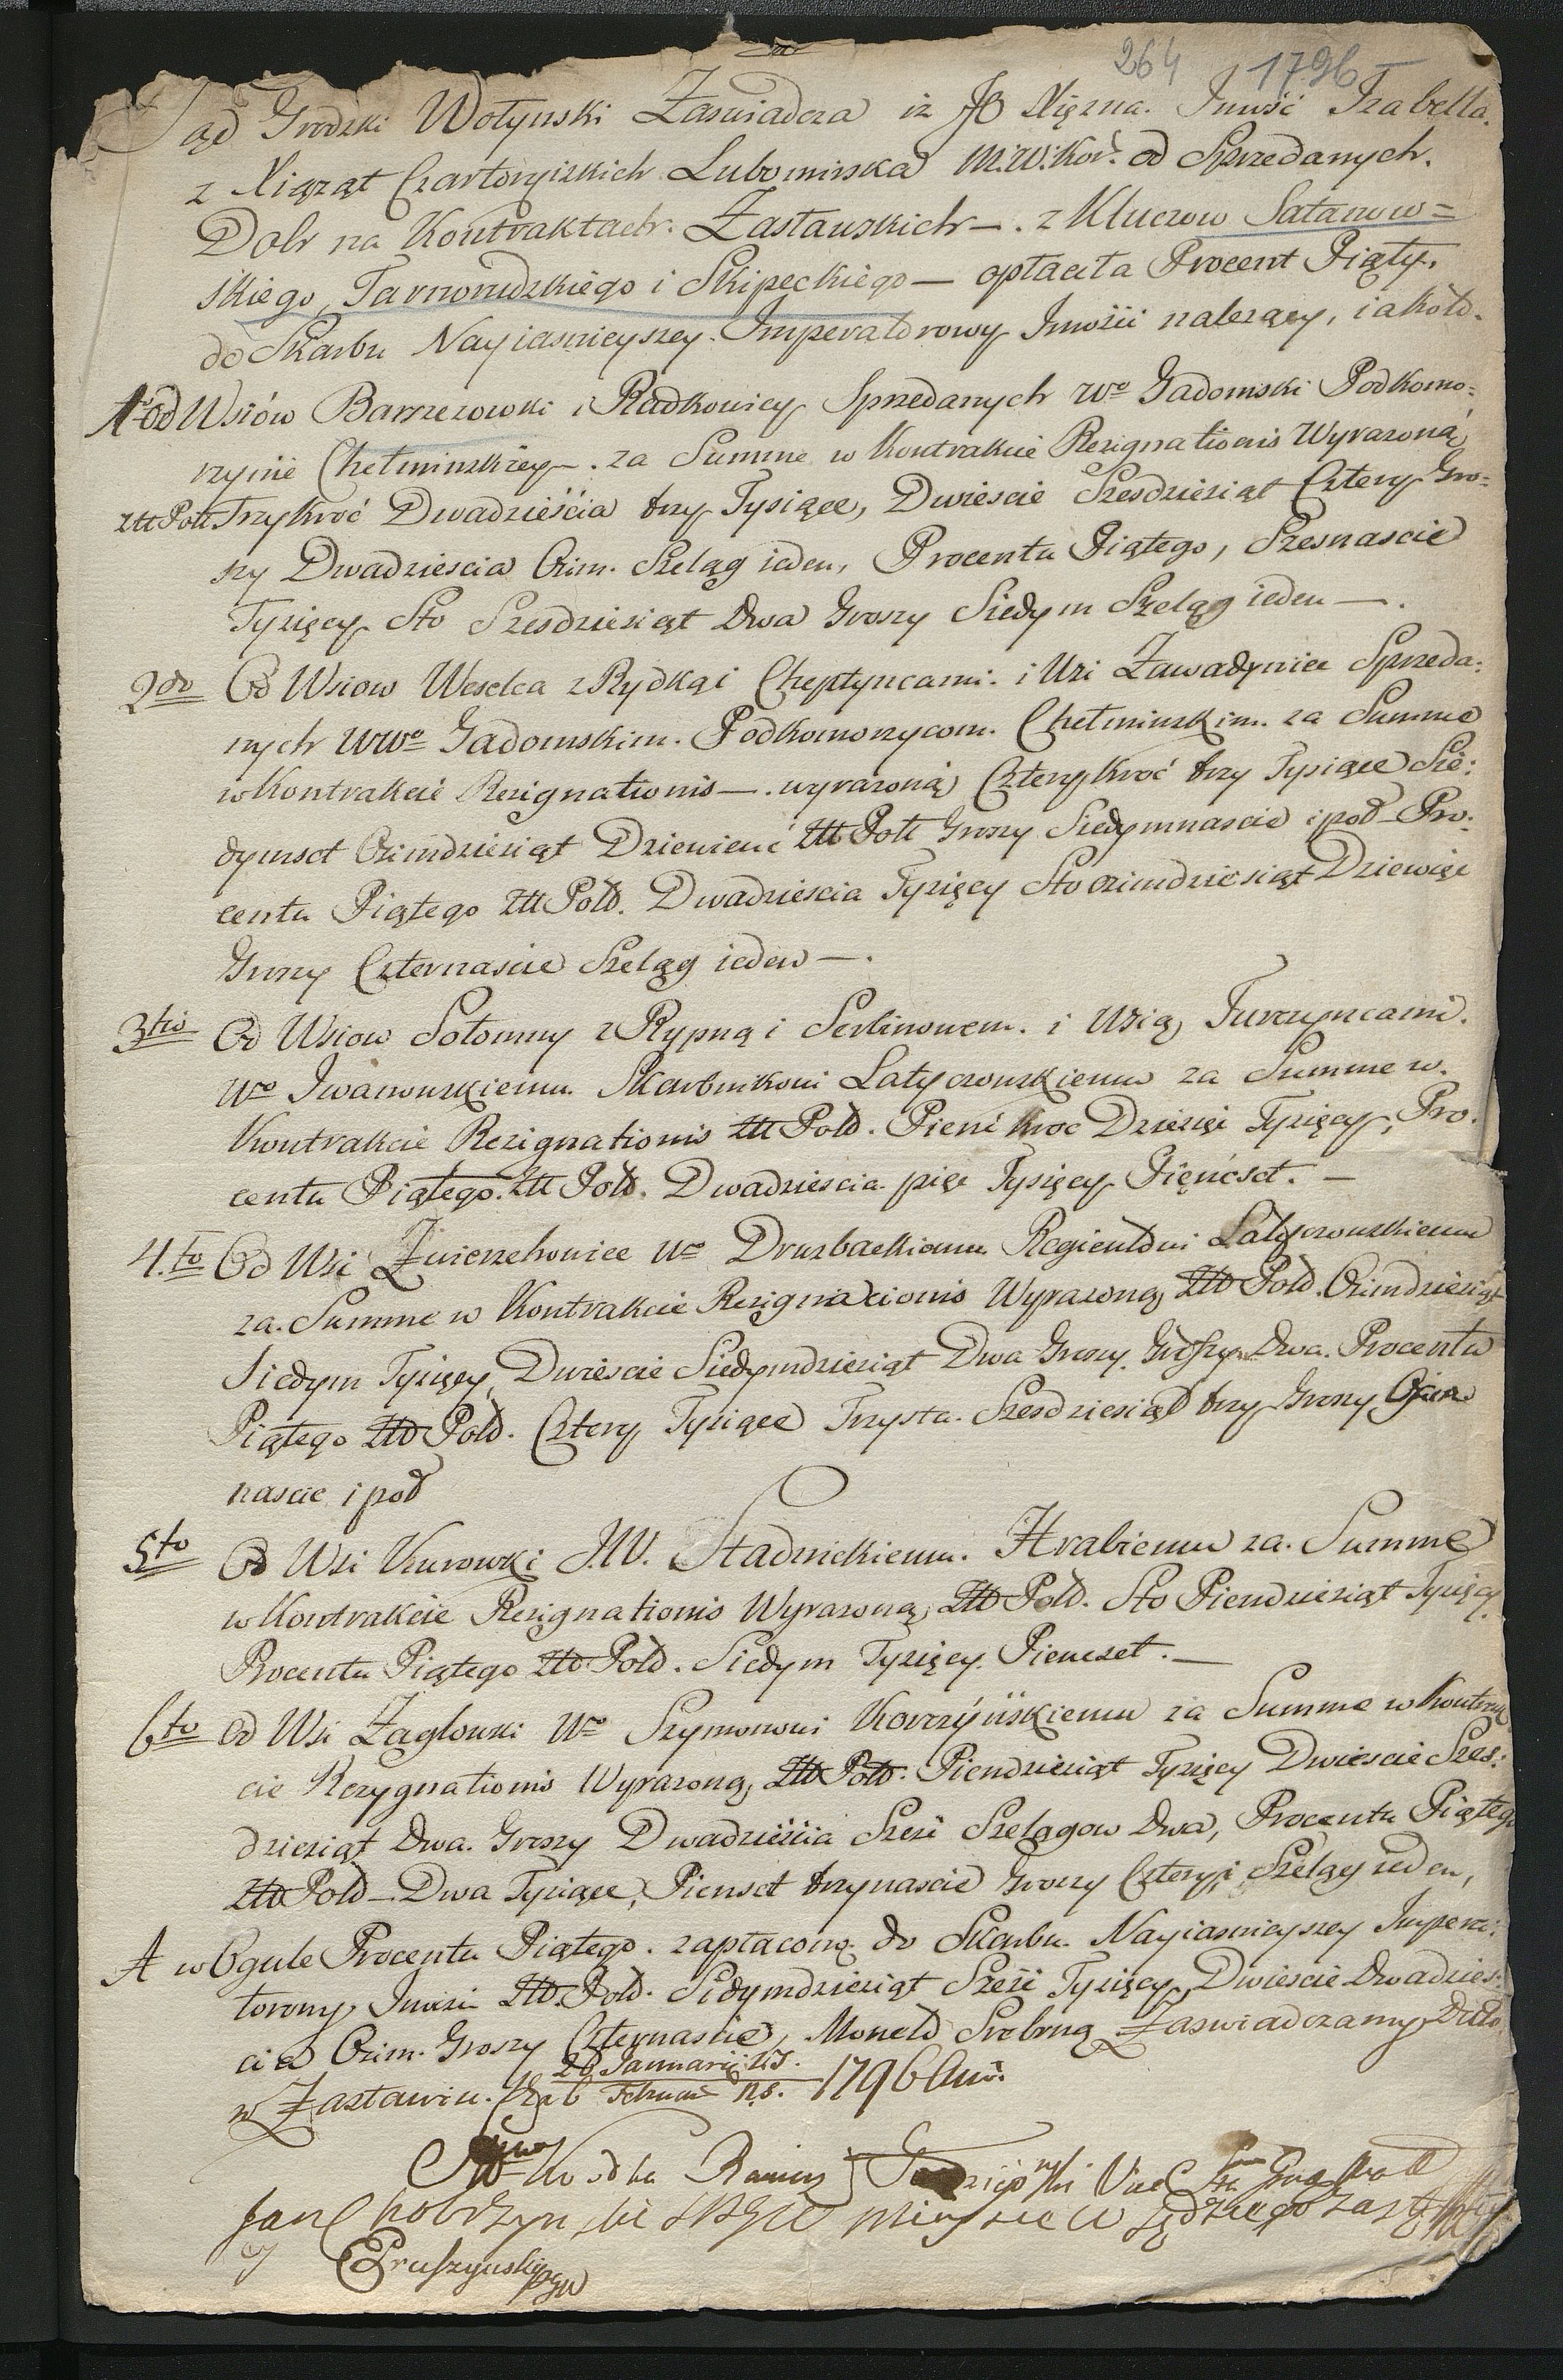 264 1796
Sąd Grodzki Wołynski Zaswiadcza iż JO Xięzna Jmość Izabella
z Xiąząt Czartoryiskich Lubomirska M:W:Kor: od Sprzedanych
Dobr na Kontraktach Zasławskich —. z Kluczow Satanow=
skiego, Tarnorudzkiego i Skipeckiego — opłaciła Procent Piąty,
do Skarbu Nayiasnieyszey Imperatorowy Jmosci nalezący, iakoto.
1º Od Wsiów Barszczowki i Radkowicy Sprzedanych We Gadomski Podkomo=
rzynie Chełminskiey —. za Summe w Kontrakcie Resignationis Wyrazoną
Złł Poll Trzykroć Dwadzieścia trzy Tysiące, Dwieście Szesdziesiąt Cztery Gro=
szy Dwadziescia Ośm. Szeląg ieden, Procentu Piątego, Szesnascie
Tysięcy Sto Szesdziesiąt Dwa Groszy Siedym Szeląg ieden —.
2do Od Wsiow Weselca z Rydką i Cheptyncami i Wsi Zawadynice Sprzeda:
nych WWo Gadomskim Podkomorzycom Chełminskim za Summe
w Kontrakcie Resignationis —. wyrazoną Czterykroć trzy Tysiące Sie:
dymset Osimdziesiąt Dziewienć Złł Poll Groszy Siedymnascie i poł Pro:
centu Piątego Złł Pold. Dwadziescia Tysięcy Sto osimdziesiąt Dziewięc
Groszy Czternascie Szeląg ieden —.
3tio Od Wsiow Sołomny z Rypną i Serbinowem i Wsią Jurczyncami
Wo Iwanowskiemu Skarbnikowi Latyczowskiemu za Summe w
Kontrakcie Rezignationis Złł Pold. Pieńć kroc Dziesięc Tysięcy, Pro
centu Piątego Złł Pold. Dwadziescia pięc Tysięcy Pięncset. —
4.to Od Wsi Zwierzchowiec Wo Druzbackiemu Regientowi Latyczowskiemu
za Summe w Kontrakcie Resignacionis Wyrazoną Złł Pold. Osimdziesiąt
Siedym Tysięcy, Dwiescie Siedymdziesiąt Dwa Groszy Groszy Dwa. Procentu
Piątego Złł Pold. Cztery Tysiące Trzysta Szesdziesiąt trzy Groszy
nascie i poł
5to Od Wsi Kurowki J.W. Stadnickiemu Hrabiemu za Summe
w Kontrakcie Resignationis Wyrazoną Złł Pold. Sto Piendziesiąt Tysięcy
Procentu Piątego Złł Pold. Siedym Tysięcy Piencset. —
6to Od Wsi Zaglowki Wo Szymonowi Korczyńskiemu za Summe w Kontrak
cie Rezygnationis Wyrazoną Złł Pold. Piendziesiąt Tysięcy Dwiescie Szes:
dziesiąt Dwa Groszy Dwadzieścia Sześć Szelągow Dwa, Procentu Piątego
Złł Pold — Dwa Tysiące, Pienset trzynascie Groszy Cztery i Szeląg ieden,
A w Ogule Procentu Piątego zapłacono do Skarbu Nayiasnieyszey Impera:
torowy Jmosci Złł. Pold. Sidymdziesiąt Sześć Tysięcy Dwiescie Dwadzies:
cia Osim Groszy Czternascie, Monetą Srebrną Zaswiadczamy Datto
w Zasławiu 26 Januarii V.S.
6 Februarii n.s. 1796 Anno
Jan Chobrzynski
Pruszynski